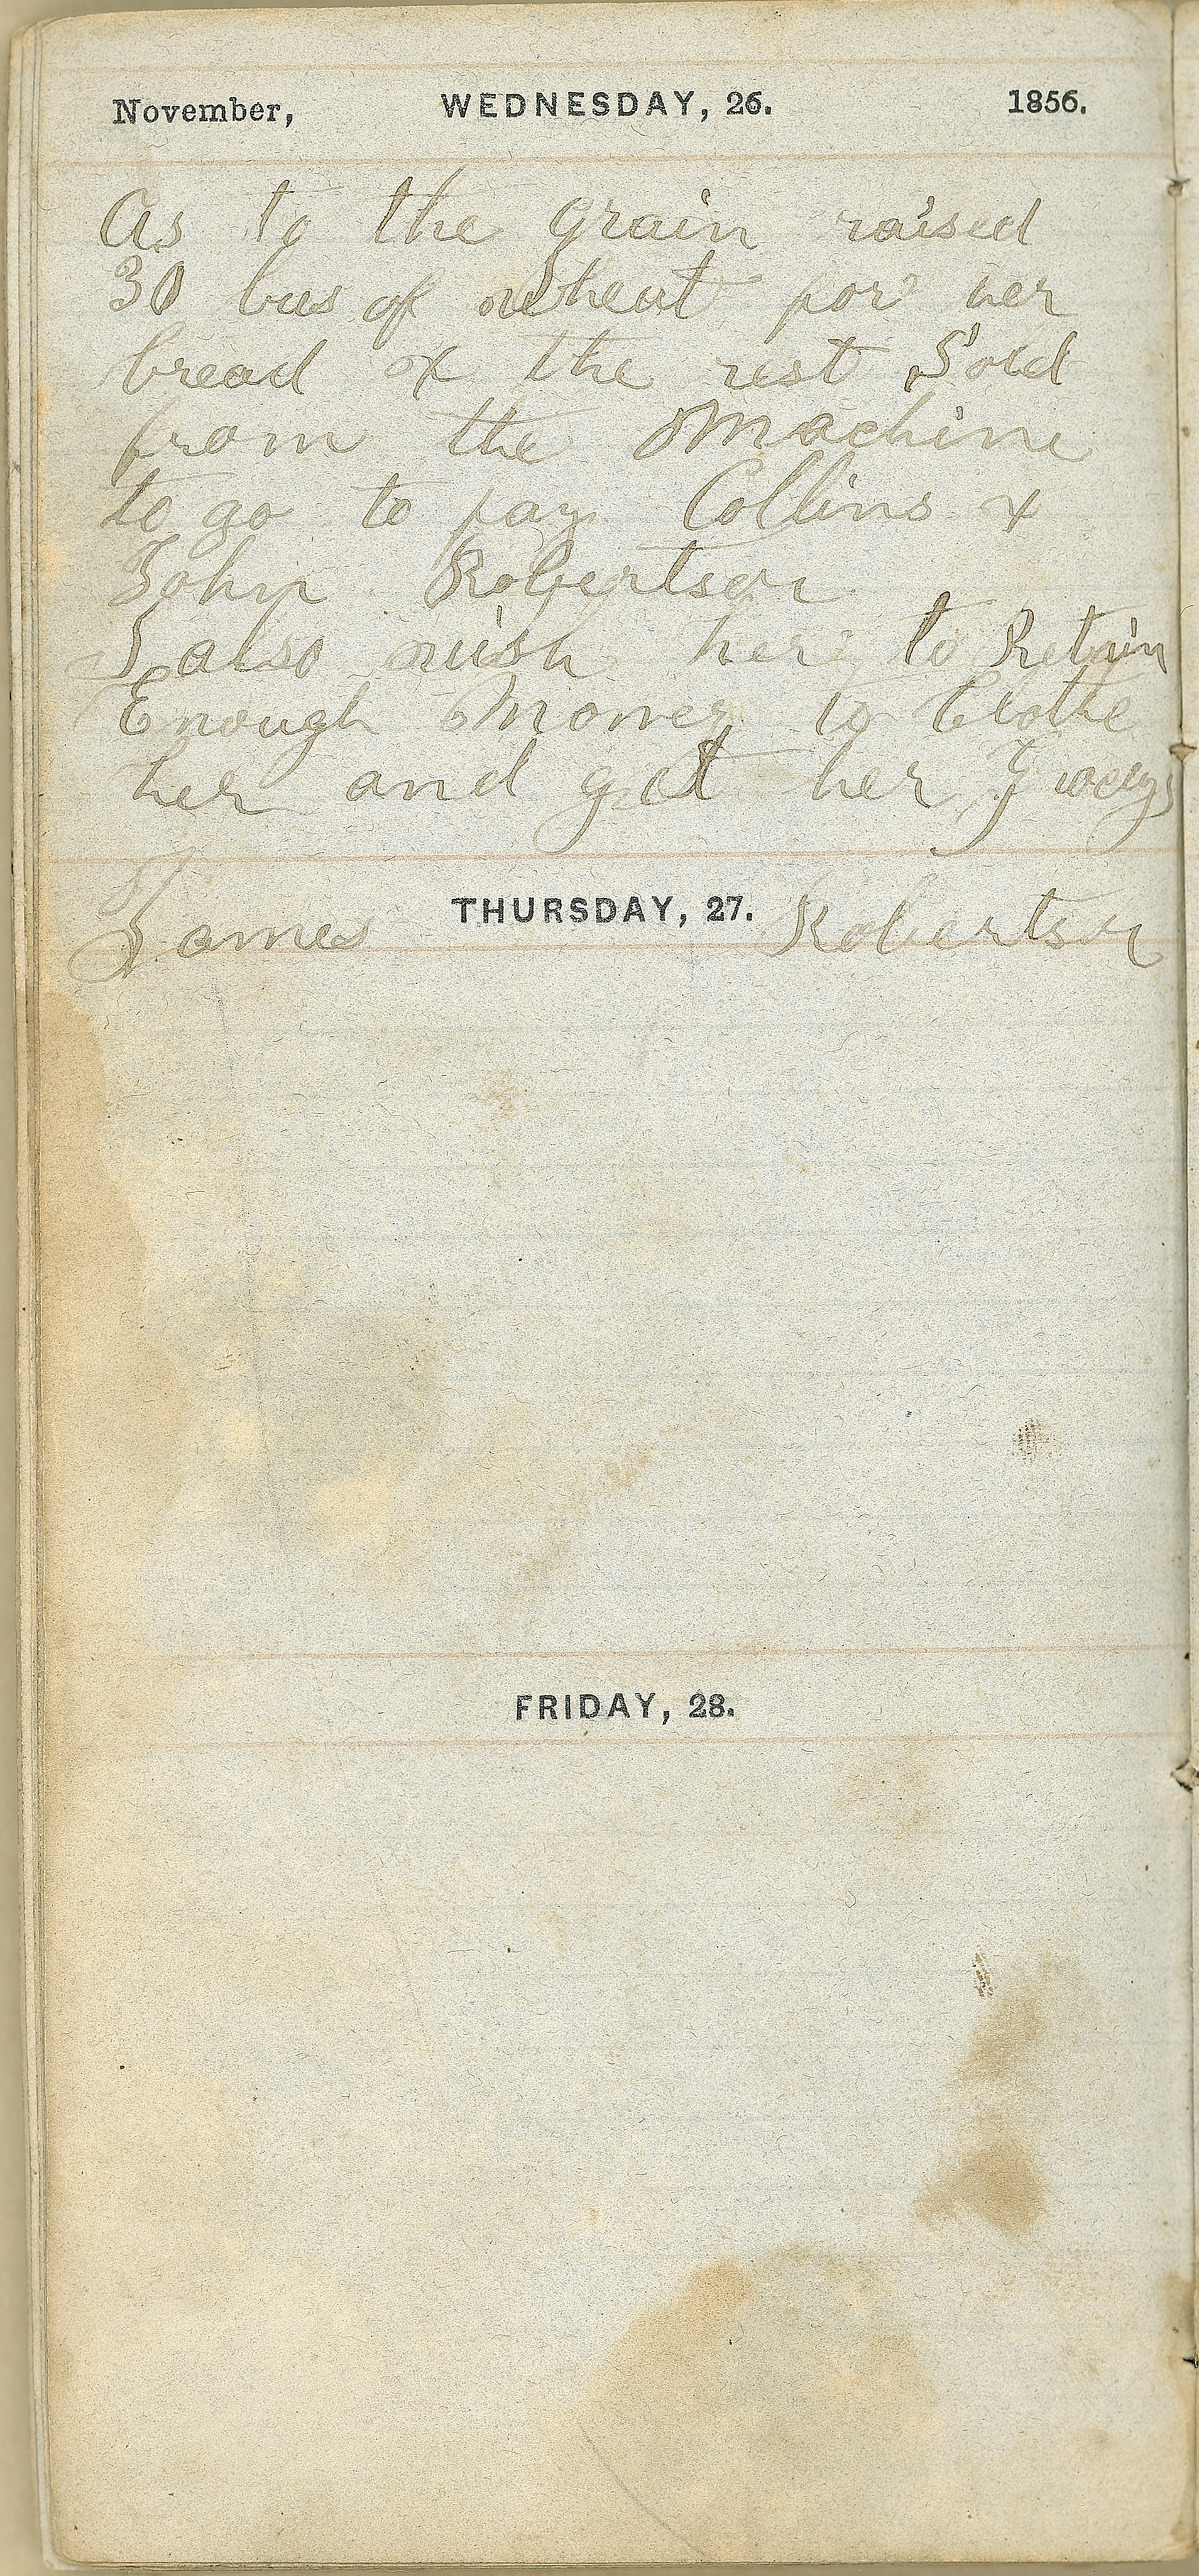 November, WEDNESDAY, 26. 1856.
As to the grain raised
30 bus of wheat for her
bread & the rest Sold
from the Machine
to go to pay Collins &
John Robertson
I also wish her to Retain
Enough Money to Clothe
her and get her
THURSDAY, 27.
James Robertson
FRIDAY, 28.